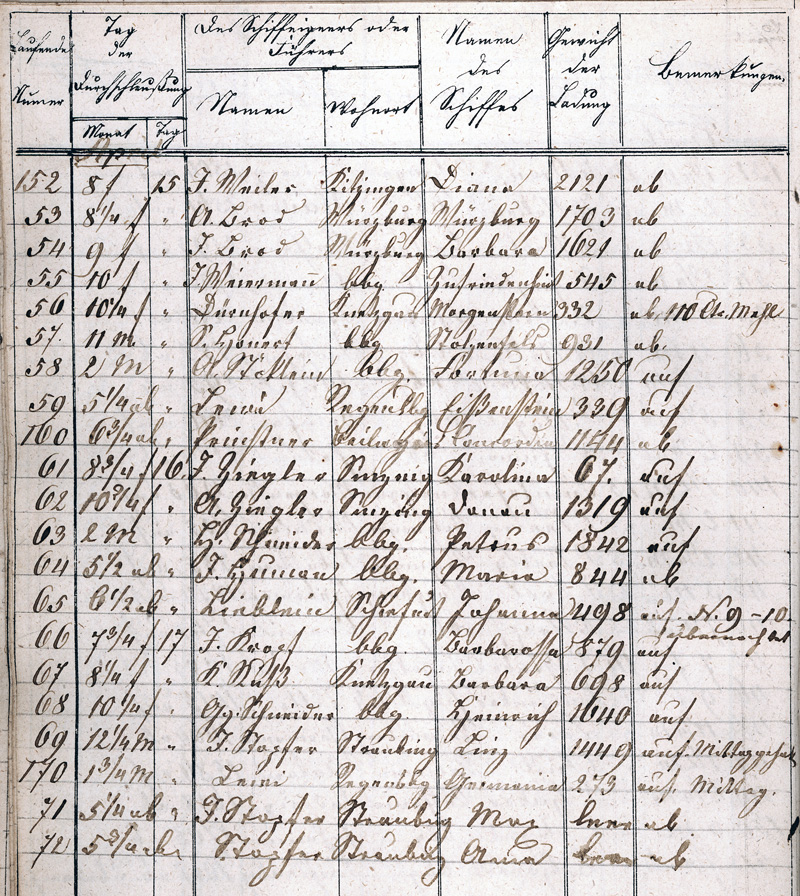 Laufende Numer Tag der Durchschleußung Des Schiffeigners oder Führers Namen des Schiffes Gewicht der Ladung Bemerkungen.
Monat Tag Namen Wohnort
April
152 8 f 15 J. Weiler Kitzingen Diana 2121 ab
53 8 1/4 f " A. Brod Würzburg Würzburg 1703 ab
54 9 f " J. Brod Würzburg Barbara 1621 ab
55 10 f " J Weiermann bbg. Zufriedenheit 545 ab
56 10 1/4 f " Dürnhofer Knetzgau Morgenstern 332 ab, 110 Ctr. Mehl
57. 11 M " S. Honert bbg Stolzenfels 931 ab.
58 2 M " A. Stöcklein bbg. Fortuna 1250 auf
59 5 1/4 ab " Regensbg Eißenstein 339 auf
160 6 3/4 ab " Concordia 1144 ab
61 8 3/4 f 16 J. Ziegler Sinzing Karolina 67. auf
62 10 3/4 f " A. Ziegler Sinzing Donau 1319 auf
63 2 M " Hr. Schneider bbg. Petrus 1842 auf
64 5 1/2 ab " J. Human bbg. Maria 844 ab
65 6 1/2 ab " Lieblein Johanna 498 auf. N. 9 - 10. übernachtet
66 7 3/4 f 17 J. Kropf bbg. Barbarossa 879 auf
67 8 1/4 f " K. Ruß Knetzgau Barbara 698 auf
68 10 1/4 f " Gg. Schneider bbg. Heinrich 1640 auf
69 12 1/4 M " J. Stopfer Straubing Linz 1449 auf. Mittag gehalt
170 1 3/4 M " Regensbg Germania 273 auf. Mittag.
71 5 1/4 ab " J. Stopfer Straubing Max leer ab
72 5 3/4 ab " Stopfer Straubing Anna leer ab